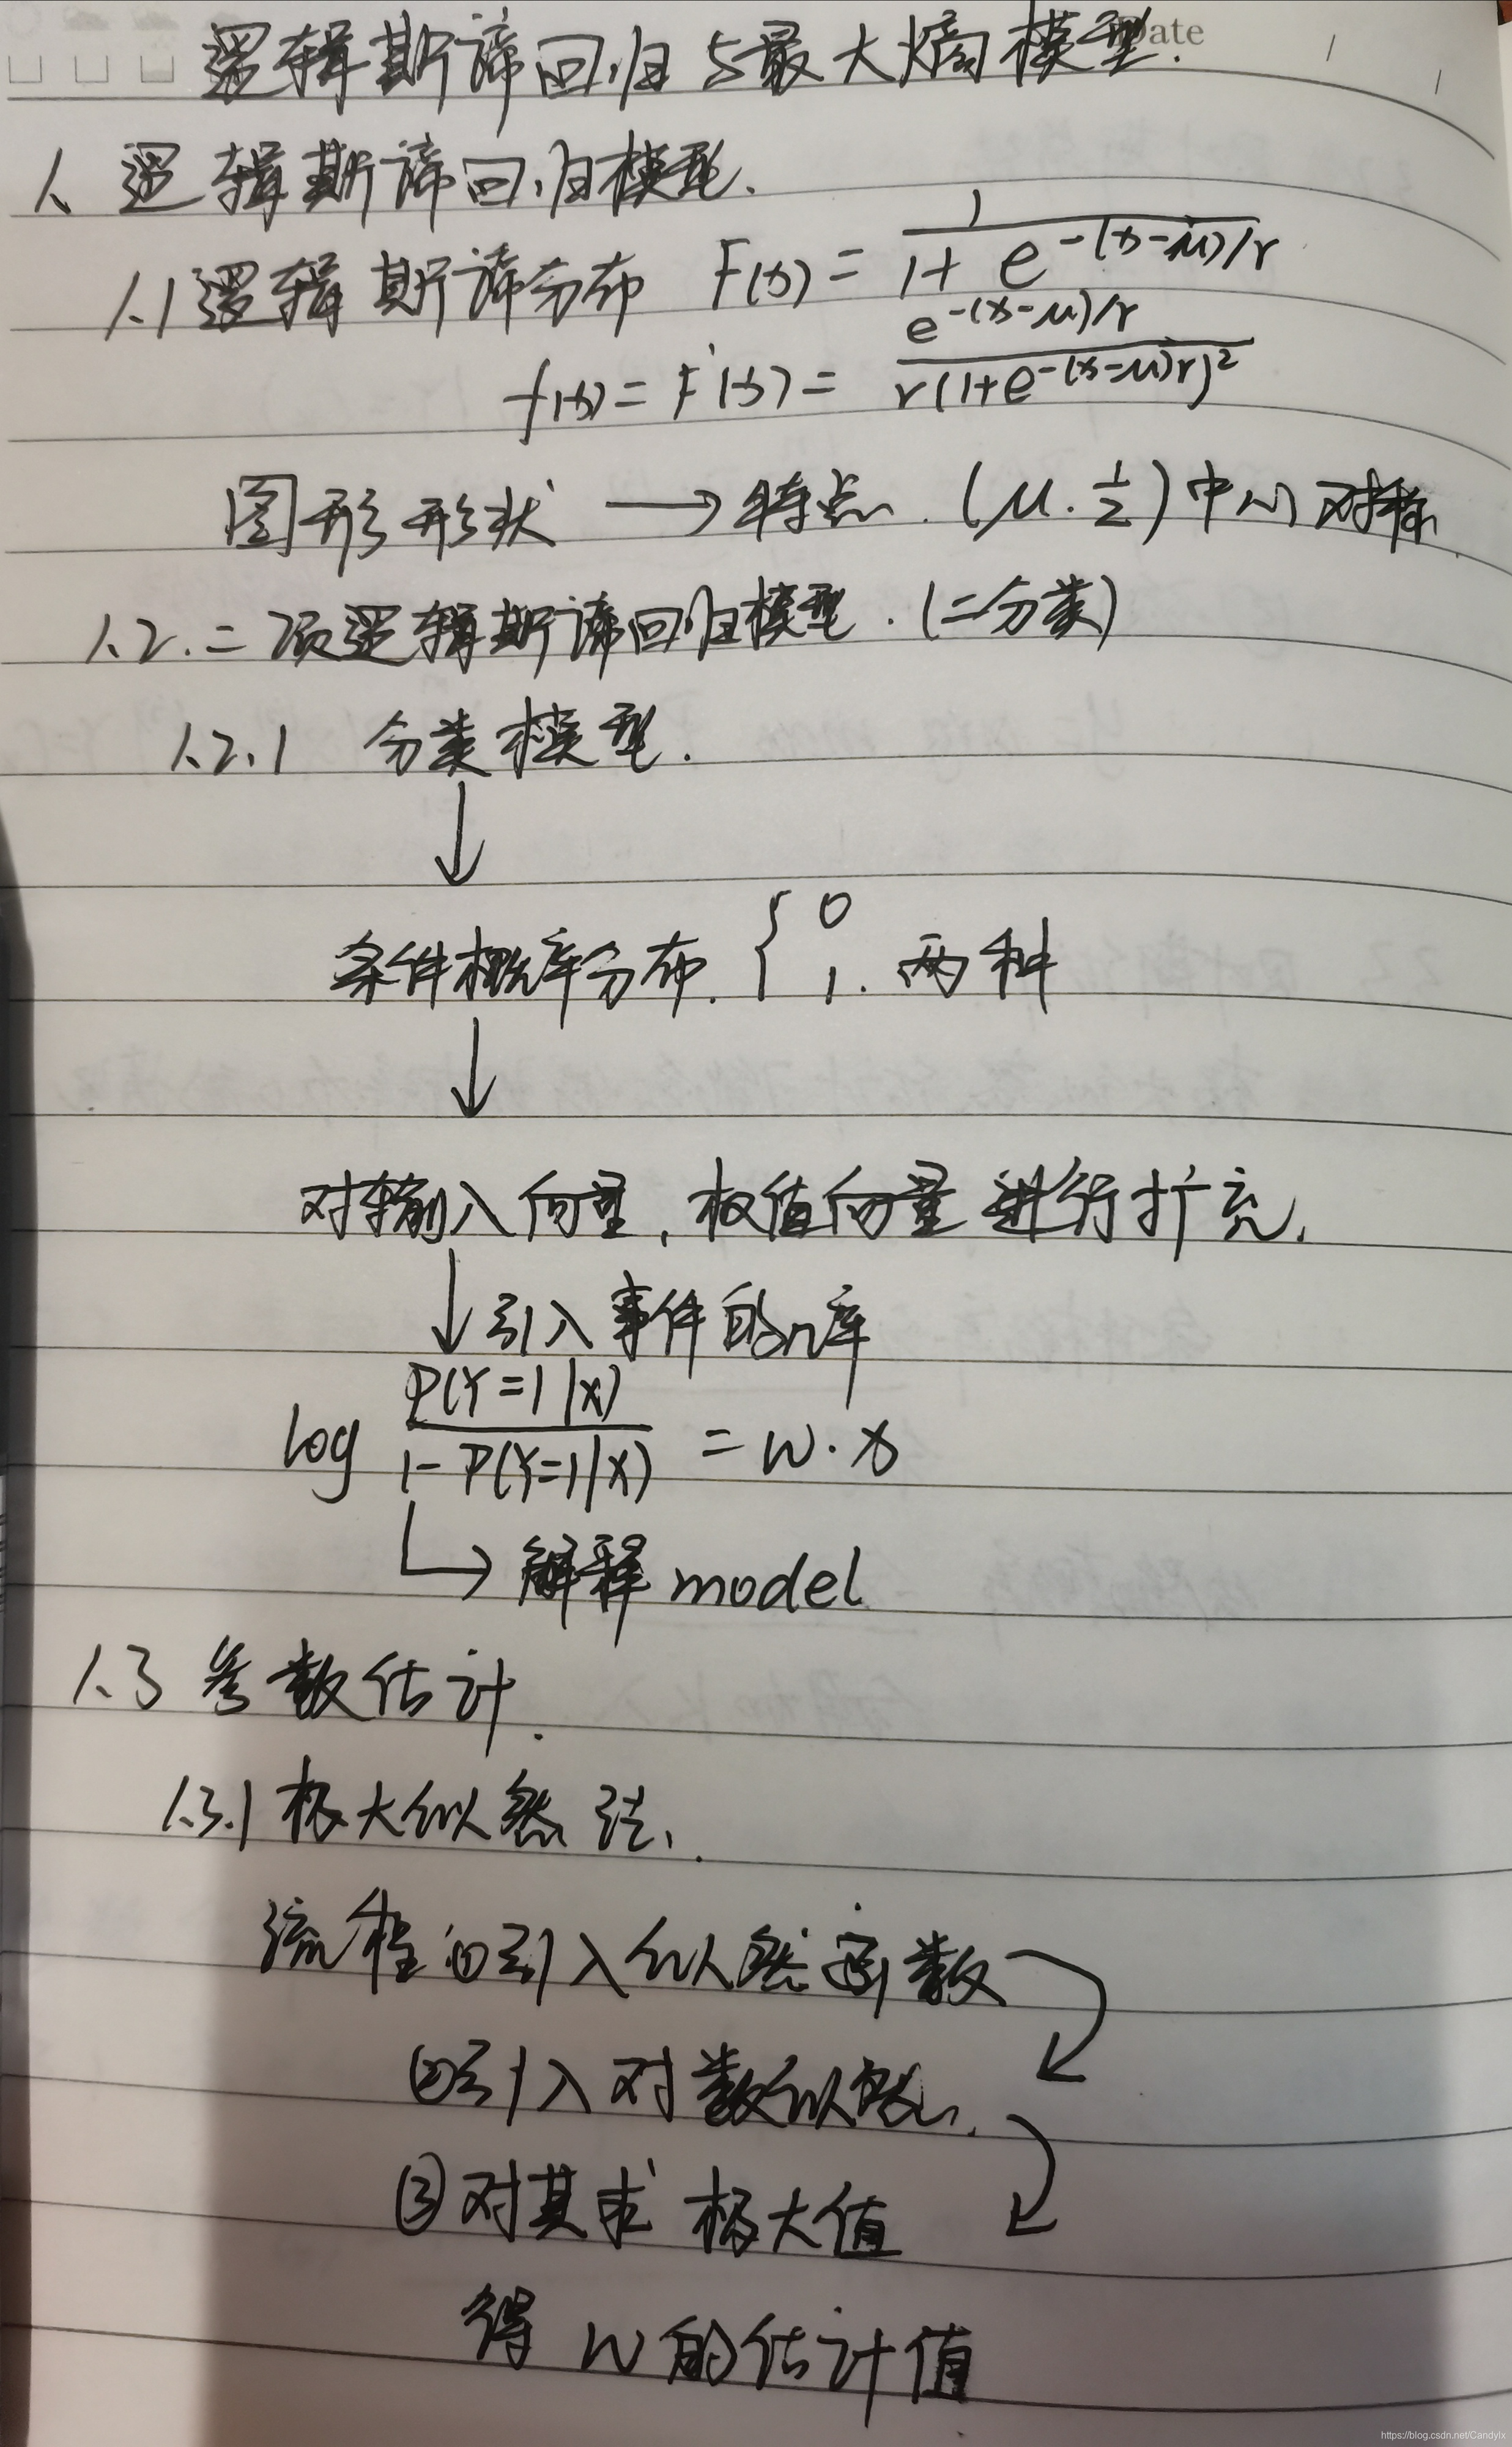 Date
逻辑斯谛回归与最大熵模型.
1、逻辑斯谛回归模型.
1.1 逻辑斯谛分布 F(x) = 1 / (1 + e^{-(x-μ)/r})
f(x) = F'(x) = e^{-(x-μ)/r} / (r(1+e^{-(x-μ)r})^2)
图形形状 → 特点. (μ. 1/2) 中心对称
1.2. 二项逻辑斯谛回归模型. (二分类)
1.2.1 分类模型.
↓
条件概率分布. { 0 1. 两种
↓
对输入向量, 权值向量进行扩充.
↓ 引入事件的几率
log P(Y=1|x) / (1-P(Y=1|x)) = w·x
↳ 解释 model
1.3 参数估计.
1.3.1 极大似然法.
流程 ①引入似然函数
②引入对数似然.
③对其求极大值
得 w 的估计值
https://blog.csdn.net/Candylx